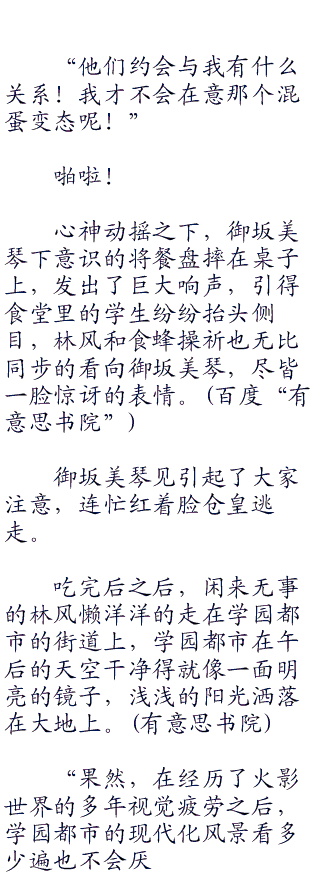 “他们约会与我有什么
关系！我才不会在意那个混
蛋变态呢！”
啪啦！
心神动摇之下，御坂美
琴下意识的将餐盘摔在桌子
上，发出了巨大响声，引得
食堂里的学生纷纷抬头侧
目，林风和食蜂操祈也无比
同步的看向御坂美琴，尽皆
一脸惊讶的表情。(百度“有
意思书院”)
御坂美琴见引起了大家
注意，连忙红着脸仓皇逃
走。
吃完后之后，闲来无事
的林风懒洋洋的走在学园都
市的街道上，学园都市在午
后的天空干净得就像一面明
亮的镜子，浅浅的阳光洒落
在大地上。(有意思书院)
“果然，在经历了火影
世界的多年视觉疲劳之后，
学园都市的现代化风景看多
少遍也不会厌